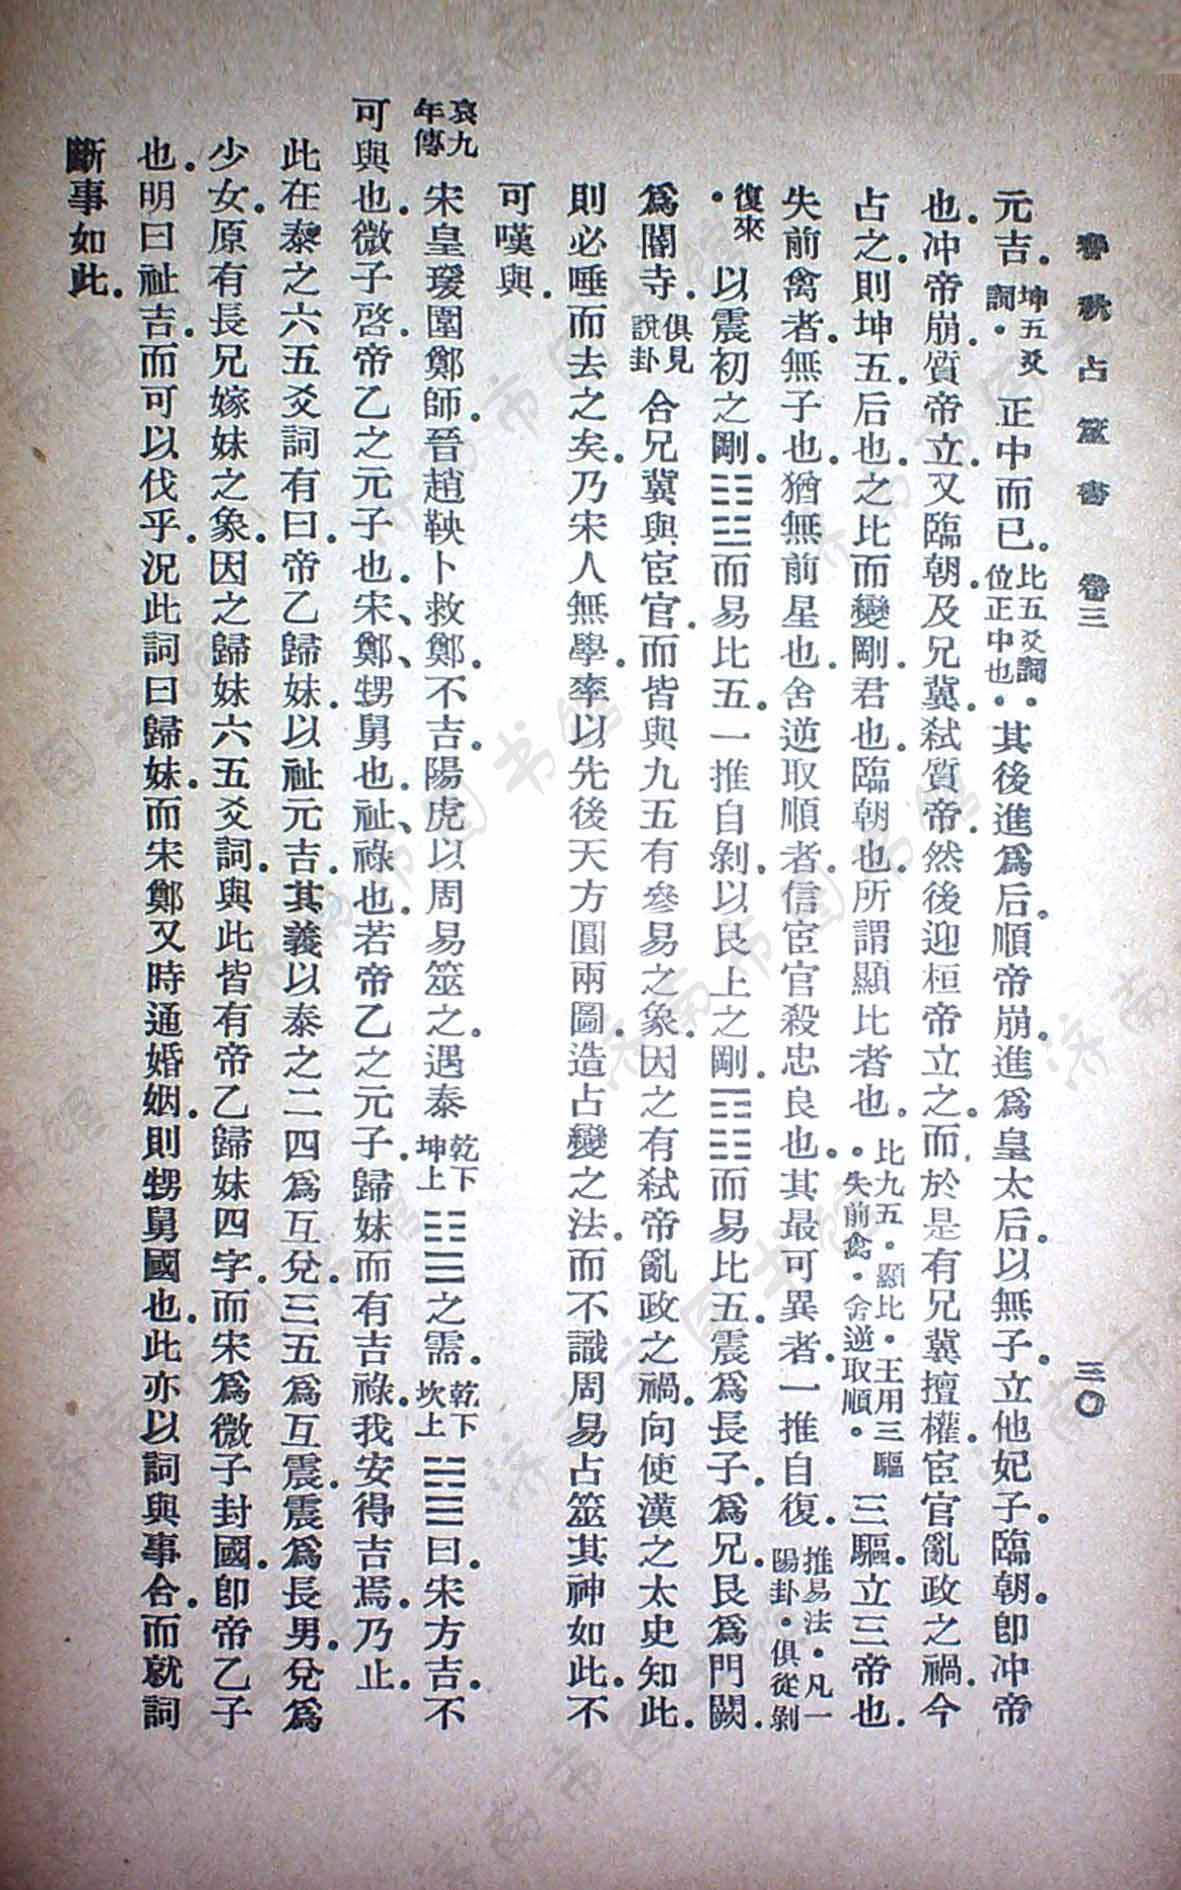 春秋占筮書　卷三　三〇
元吉。坤五爻詞。正中而已。比五爻詞。位正中也。其後進爲后。順帝崩。進爲皇太后。以無子。立他妃子。臨朝。卽冲帝
也。冲帝崩。質帝立。又臨朝。及兄冀弑質帝。然後迎桓帝立之。而於是有兄冀擅權。宦官亂政之禍。今
占之。則坤五。后也。之比而變剛。君也。臨朝也。所謂顯比者也。比九五。顯比。王用三驅。失前禽。舍逆取順。三驅。立三帝也。
失前禽者。無子也。猶無前星也。舍逆取順者。信宦官殺忠良也。其最可異者。一推自復。推易法。凡一陽卦。俱從剝
復來。以震初之剛。䷗而易比五。一推自剝。以艮上之剛。䷖而易比五。震爲長子。爲兄。艮爲門闕。
爲閽寺。俱見說卦 合兄冀與宦官。而皆與九五有參易之象。因之有弑帝亂政之禍。向使漢之太史知此。
則必唾而去之矣。乃宋人無學。率以先後天方圓兩圖。造占變之法。而不識周易占筮其神如此。不
可嘆與。
哀九年傳 宋皇瑗圍鄭師。晉趙鞅卜救鄭。不吉。陽虎以周易筮之。遇泰 乾下坤上 ䷊之需。乾下坎上 ䷄曰。宋方吉。不
可與也。微子啓。帝乙之元子也。宋、鄭、甥舅也。祉、祿也。若帝乙之元子。歸妹而有吉祿。我安得吉焉。乃止。
此在泰之六五爻詞有曰。帝乙歸妹。以祉元吉。其義以泰之二四爲互兌。三五爲互震。震爲長男。兌爲
少女。原有長兄嫁妹之象。因之歸妹六五爻詞。與此皆有帝乙歸妹四字。而宋爲微子封國。卽帝乙子
也。明曰祉吉。而可以伐乎。況此詞曰歸妹。而宋鄭又時通婚姻。則甥舅國也。此亦以詞與事合。而就詞
斷事如此。